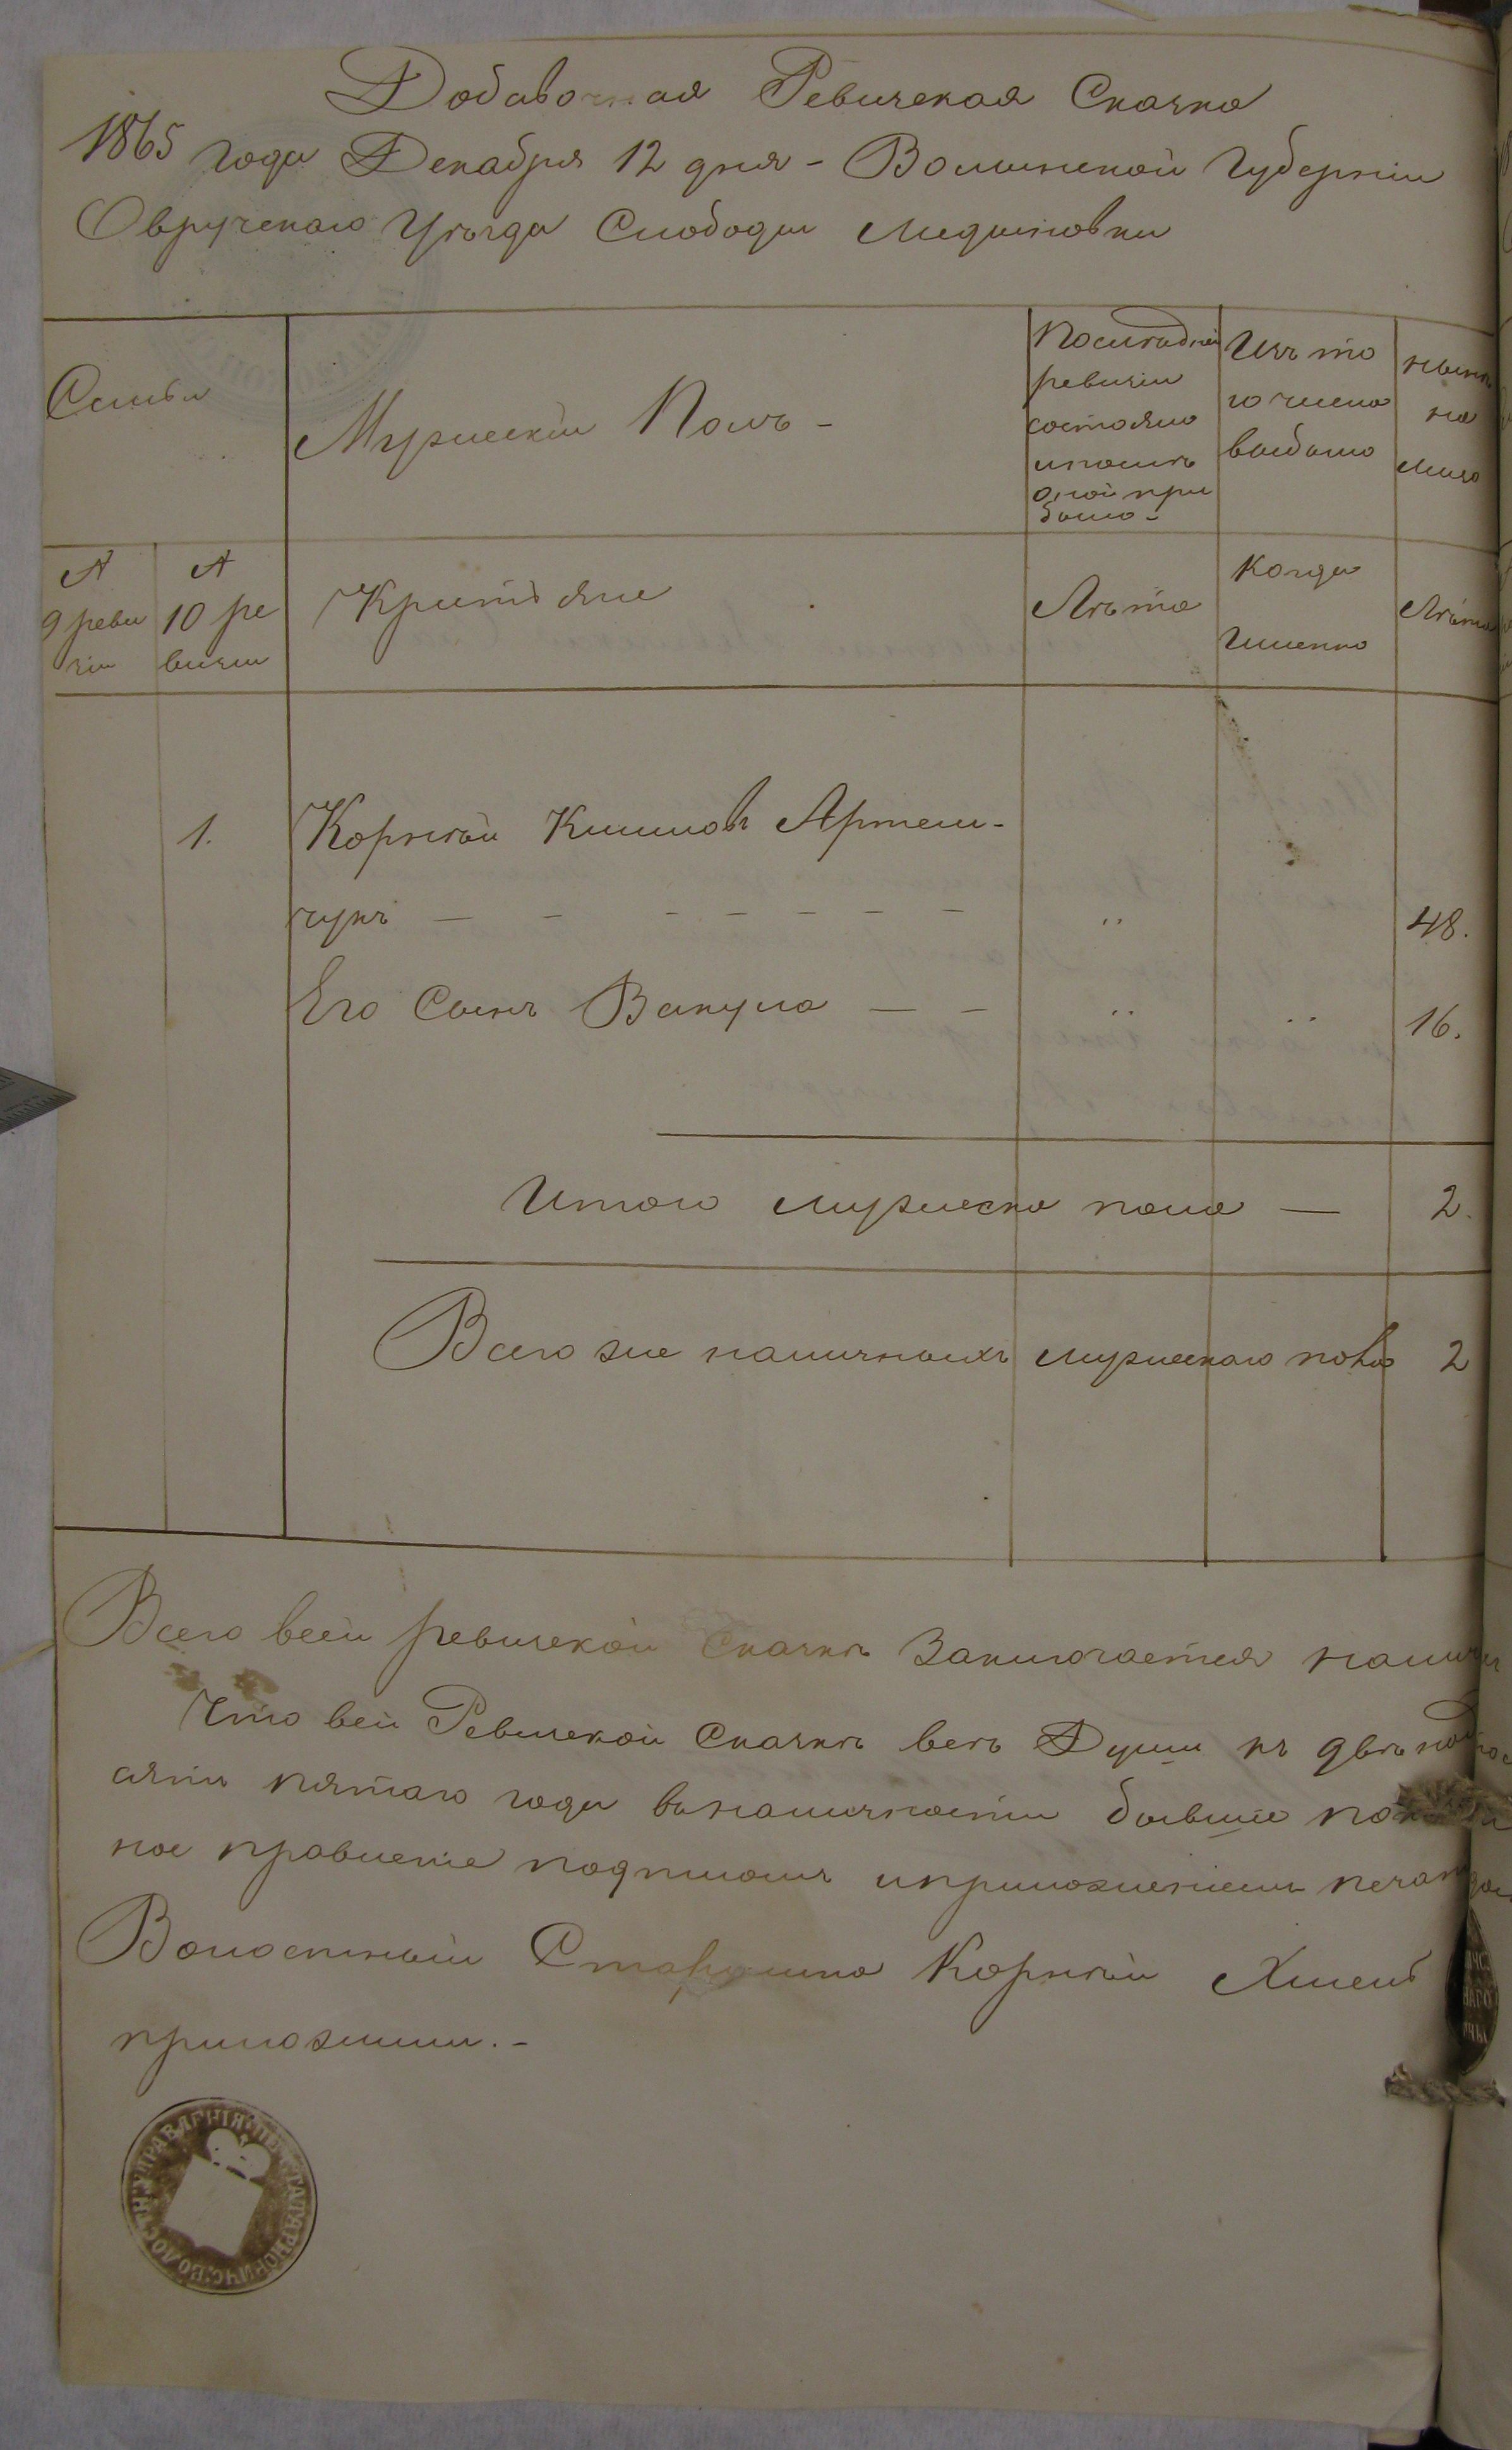 Добавочная Ревизская Сказка
1865 года Декабря 12 дня - Волынской Губернии
Овручскаго Уѣзда Слободы
Семьи
Мужескій Полъ -
По
ревизіи
состояло
и послѣ
оной при
было -
Изъ то
го числа
выбыло
нынѣ
на
лицо
9 реви
зіи
10 ре
визіи
Крестьяне
Лѣта
Когда
Именно
Лѣта
1. Корнѣй Климовъ Артем-
чукъ — — — — — — — „ 48.
Его Сынъ Вакула — — „ „ 16.
Итого мужеска пола — 2.
Всего же наличныхъ мужескаго пола 2
Всего в сей ревизской Сказкѣ Заключается
Что в сей Ревизской Сказкѣ всѣ Души
пятаго года въ наличности бывшіе
ное правленіе подписомъ и приложеніемъ
Волостный Старшина Корнѣй
приложилъ. -
УПРАВЛЕНІЯ
ВОЛОСТН